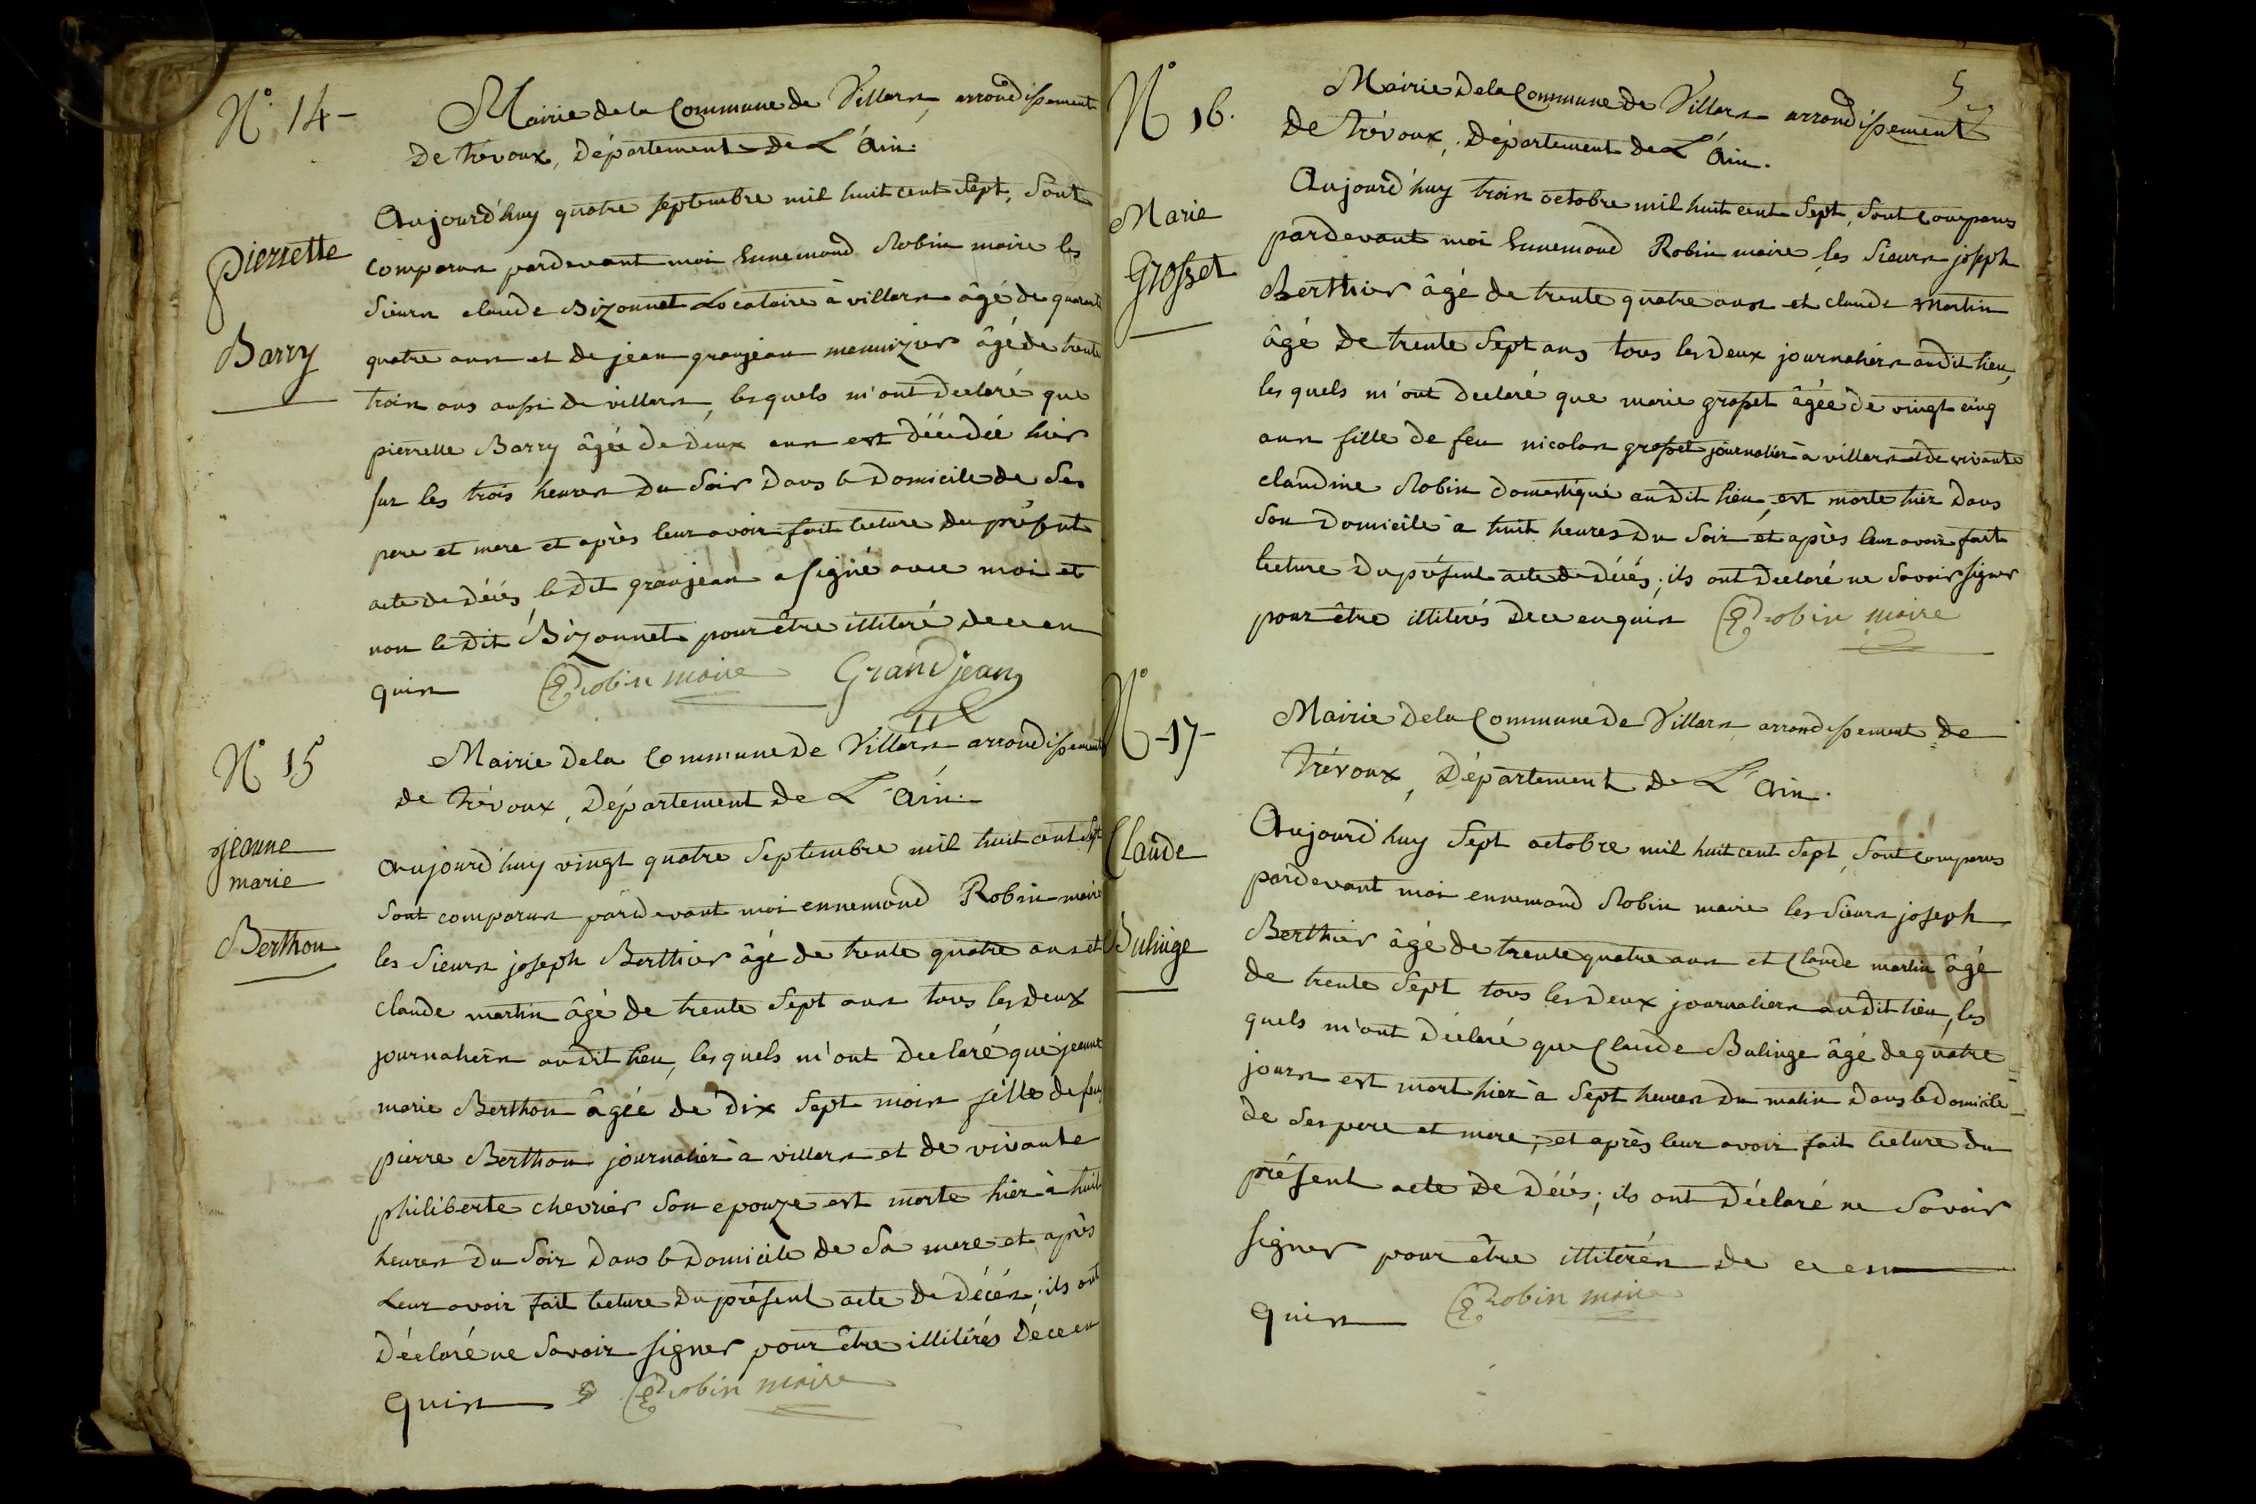 N° 14 -
Mairie de la Commune de Villars arrondissement
de trévoux, Département de L'Ain.
pierrette
Barry
Aujourd'huy quatre septembre mil huit cent Sept, Sont
comparus pardevant moi Ennemond Robin maire les
Sieurs claude Bizonnet Locataire à villars âgé de quarante
quatre ans et de jean granjean menuizier âgé de trente
trois ans aussi de villars, les quels m'ont declaré que
pierrette Barry âgée de deux ans est décédée hier
sur les trois heures du Soir dans le Domicile de Ses
pere et mere et après leur avoir fait lecture du présent
acte de décés, le dit granjean a signé avec moi et
non le dit Bizonnet pour être illitéré de ce en
quis Robin maire Grandjean
N° 15
Mairie de la Commune de Villars arrondissement
de trévoux, Département de L'Ain.
jeanne
marie
Berthon
Aujourd'huy vingt quatre Septembre mil huit cent Sept
Sont comparus pardevant moi ennemond Robin maire
les Sieurs joseph Berthier âgé de trente quatre ans et
claude martin âgé de trente Sept ans tous les deux
journaliers audit lieu, les quels m'ont declaré que jeanne
marie Berthon âgée de dix Sept mois fille de feu
pierre Berthon journalier à villars et de vivante
philiberte chevrier Son epouze est morte hier à huit
heures du Soir dans le domicile de Sa mere et après
Leur avoir fait lecture du présent acte de décés; ils ont
Déclaré ne Savoir signer pour être illitérés de ce en
quis Robin maire
5
N° 16.
Mairie de la Commune de Villars arrondissement
de trévoux, Département de L'Ain.
Marie
Grosset
Aujourd'huy trois octobre mil huit cent Sept, Sont comparus
pardevant moi Ennemond Robin maire les Sieurs joseph
Berthier âgé de trente quatre ans et claude Martin
âgé de trente Sept ans tous les deux journaliers audit lieu,
les quels m'ont declaré que marie grosset âgée de vingt cinq
ans fille de feu nicolas grosset journalier à villars et de vivante
claudine Robin domestique audit lieu, est morte hier dans
Son Domicile à huit heures du Soir et après leur avoir fait
lecture du présent acte de décés; ils ont declaré ne Savoir signer
pour être illitérés de ce enquis Robin maire
N° -17-
Mairie de la Commune de Villars arrondissement de
Trévoux, Département de L'Ain.
Claude
Bulinge
Aujourd'huy Sept octobre mil huit cent Sept, Sont comparus
pardevant moi ennemond Robin maire les Sieurs joseph
Berthier âgé de trente quatre ans et Claude martin âgé
de trente Sept tous les deux journaliers audit lieu, les
quels m'ont déclaré que Claude Bulinge âgé de quatre =
jours est mort hier à Sept heures du matin dans le domicile
de Ses pere et mere, et après leur avoir fait lecture du
présent acte de décés; ils ont déclaré ne Savoir
signer pour être illitérés de ce en
quis Robin maire